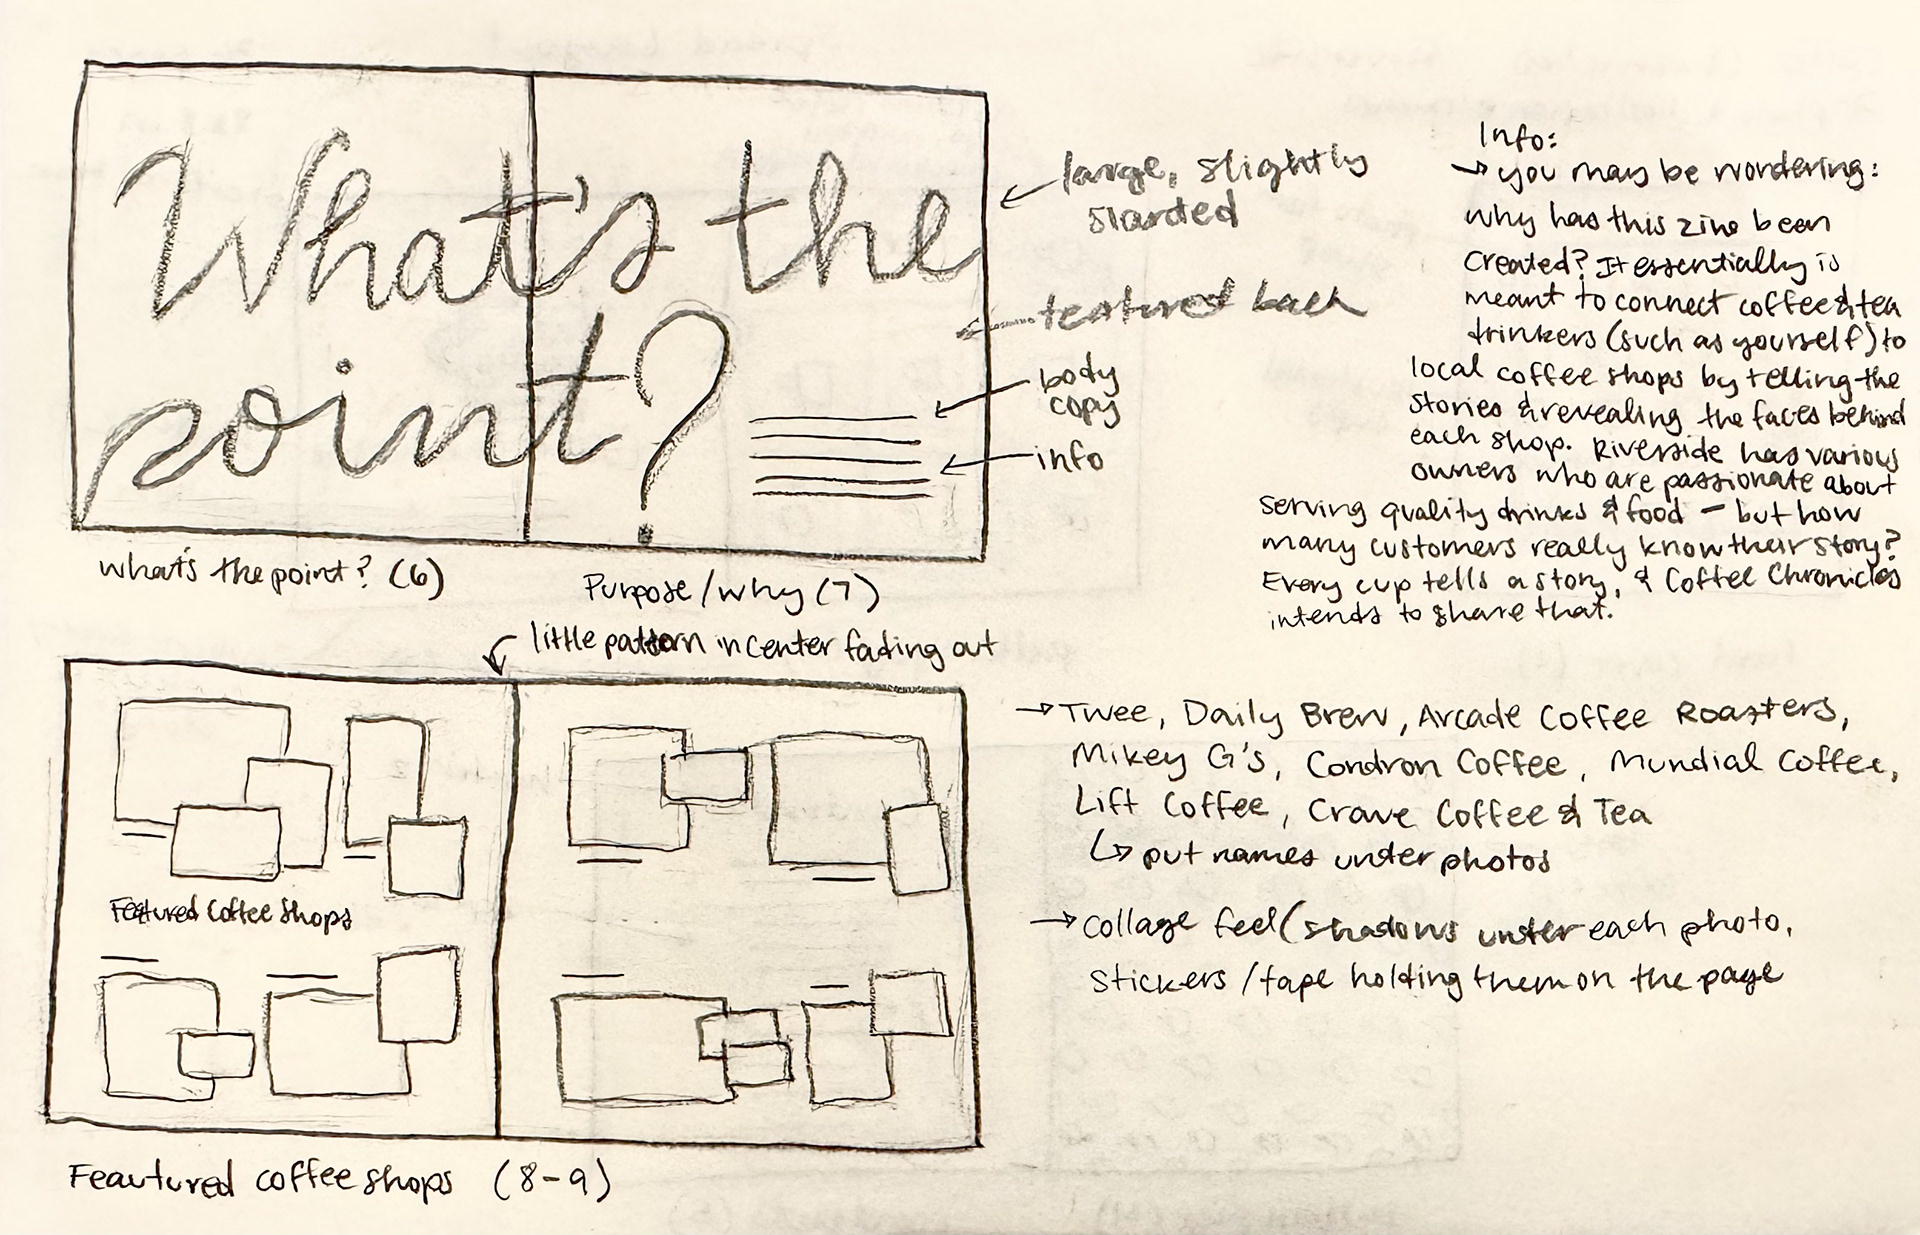 What's the
point?
large, slightly
slanted
textured back
body
copy
info
what's the point? (6)
Purpose/why (7)
Info:
→ you may be wondering:
why has this zine been
created? It essentially is
meant to connect coffee & tea
drinkers (such as yourself) to
local coffee shops by telling the
stories & revealing the faces behind
each shop. Riverside has various
owners who are passionate about
serving quality drinks & food - but how
many customers really know their story?
Every cup tells a story, & Coffee Chronicles
intends to share that.
little pattern in center fading out
Featured Coffee Shops
Feautured coffee shops (8-9)
→ Twee, Daily Brew, Arcade Coffee Roasters,
Mikey G's, Condron Coffee, Mundial Coffee,
Lift Coffee, Crave Coffee & Tea
↳ put names under photos
→ collage feel (shadows under each photo,
stickers/tape holding them on the page